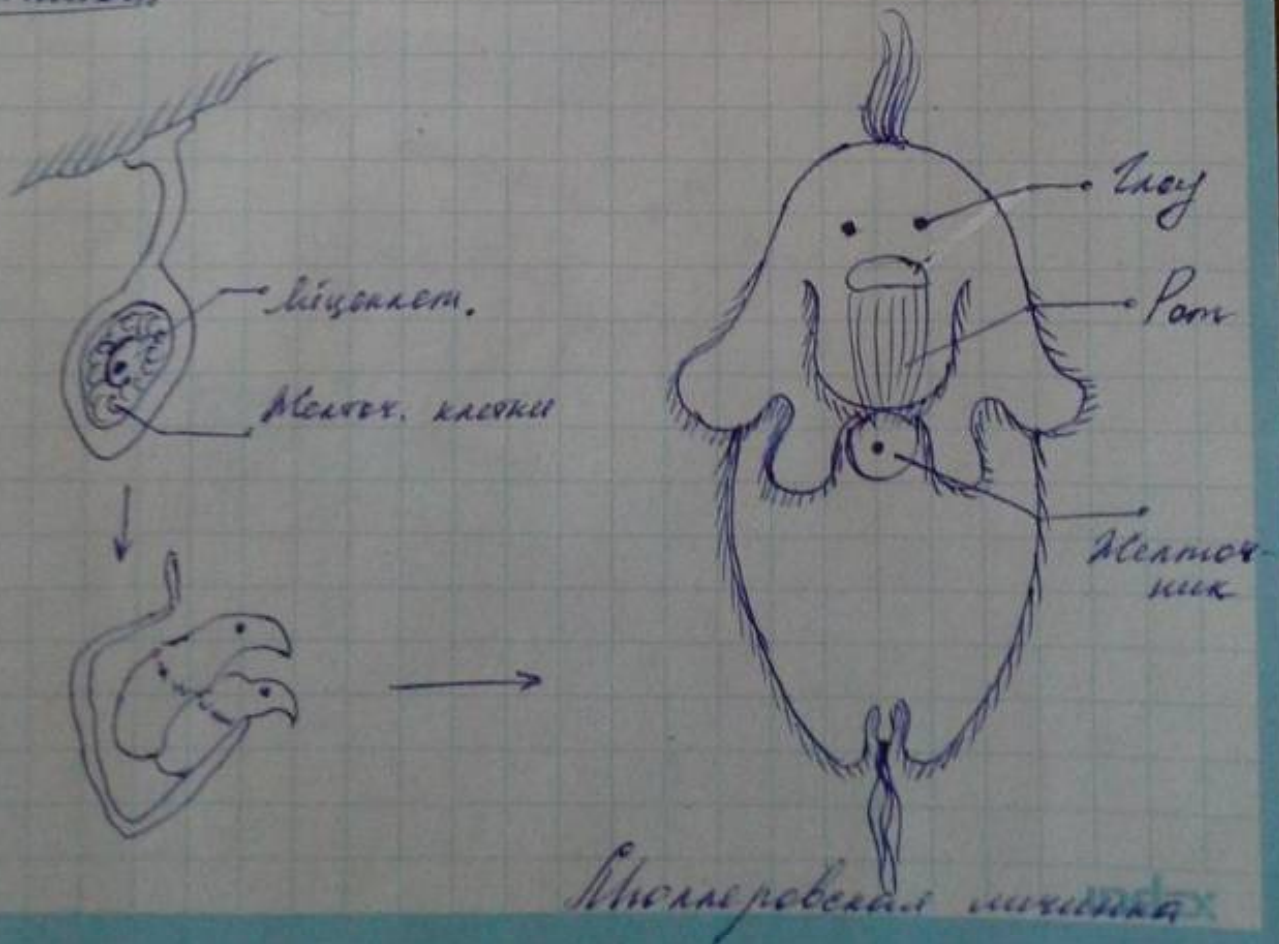 Яйцеклет.
Желточ. клетки
Глаз
Рот
Желточ-
ник
Мюллеровская личинка